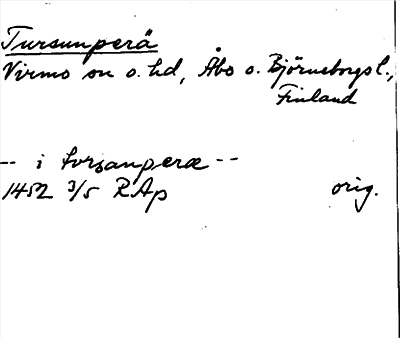 Tursunperä
Virmo sn o. hd, Åbo o. Björneborgs l.,
Finland
-- i torsanperæ --
1452 3/5 RAp orig.